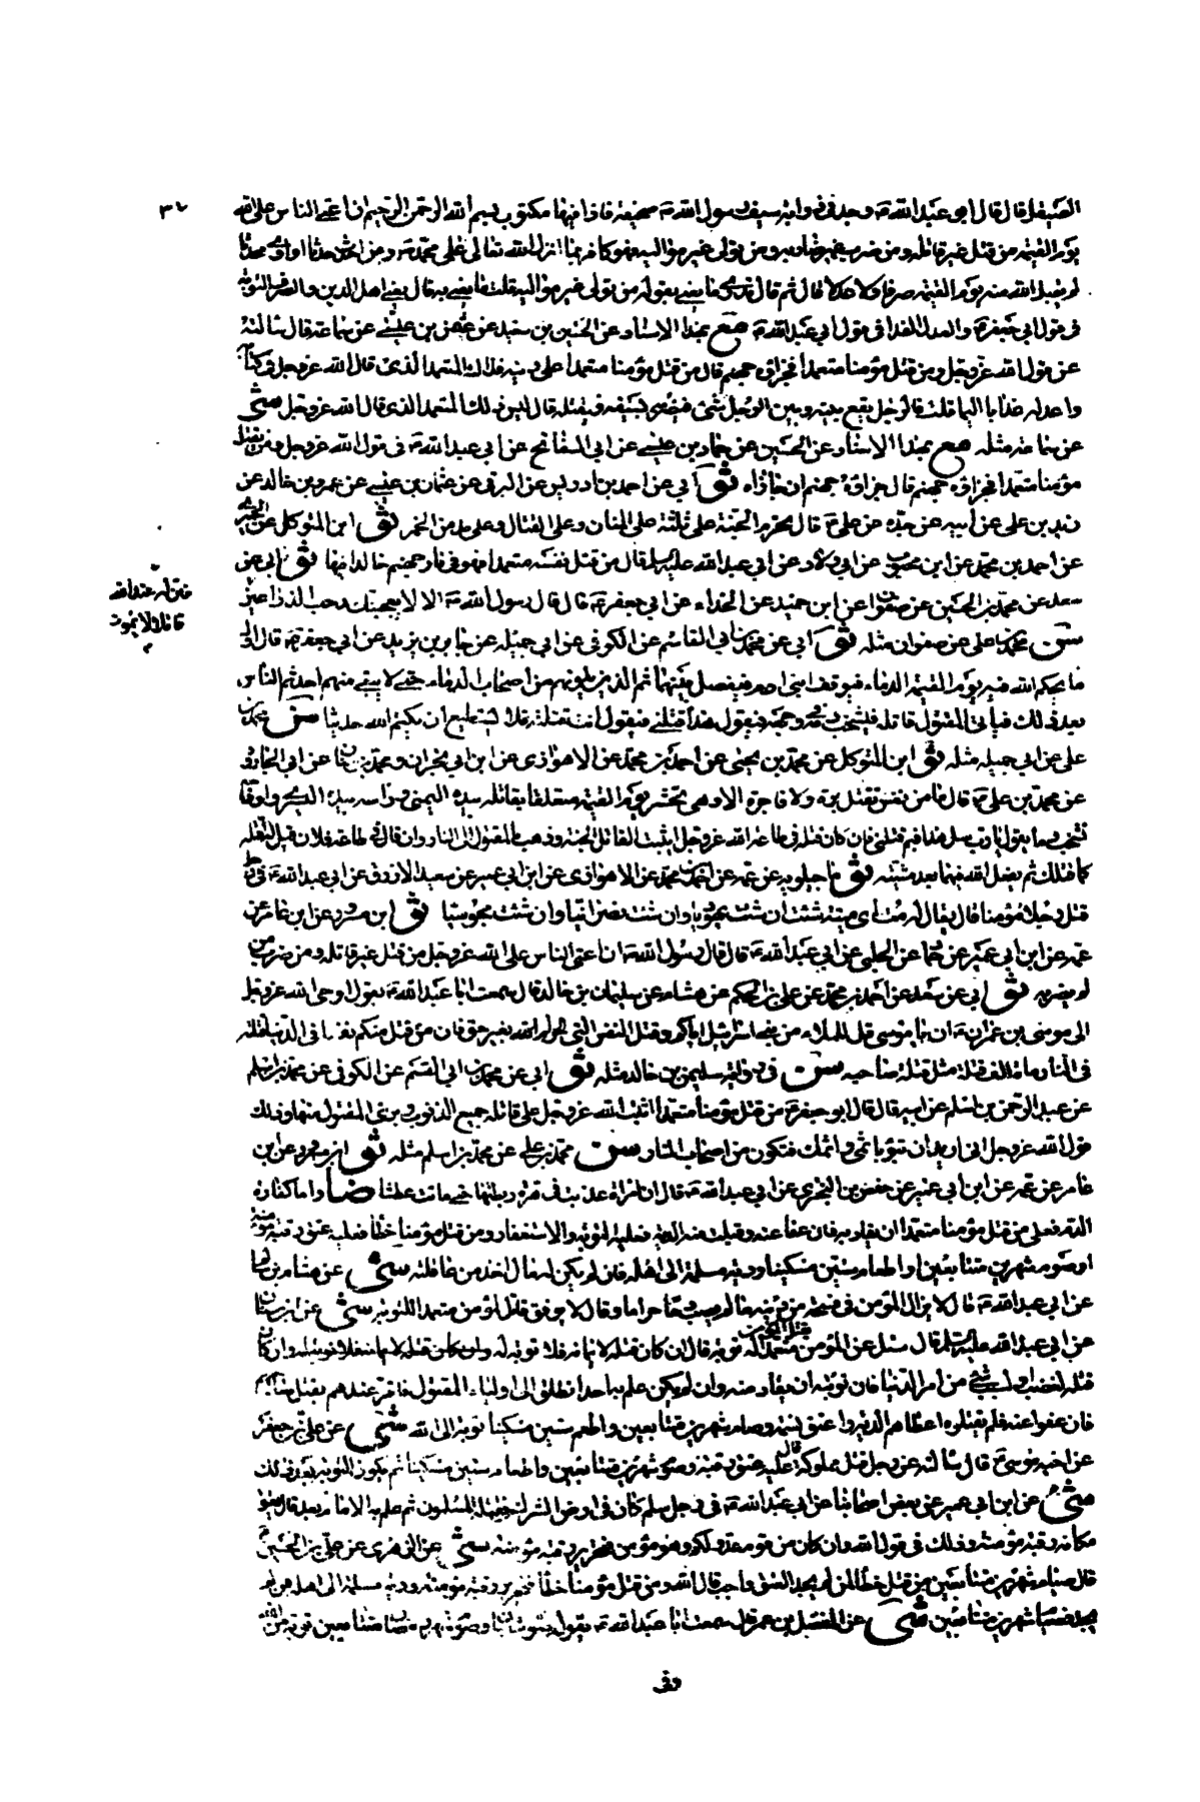 ٣٧
الصيقل قال قال ابو عبد الله ع وجد في ذوابة سيف رسول الله ص صحيفة فاذا فيها مكتوب بسم الله الرحمن الرحيم ان اعتى الناس على الله
يوم القيمة من قتل غير قاتله ومن ضرب غير ضاربه ومن تولى غير مواليه فهو كافر بما انزل الله تعالى على محمد ص ومن احدث حدثا او آوى محدثا
لم يقبل الله منه يوم القيمة صرفا ولا عدلا قال ثم قال تدرى ما يعنى بقوله من تولى غير مواليه قلت ما يعنى به قال يعنى اهل الدين والصرف التوبة
فى قول ابي جعفر ع والعدل الفدا فى قول ابي عبد الله ع مع بهذا الاسناد عن الحسين بن سعيد عن عثمن بن عيسى عن سماعة قال سالته
عن قول الله عز وجل ومن قتل مؤمنا متعمدا فجزاؤه جهنم قال من قتل مؤمنا متعمدا على دينه فذلك المتعمد الذى قال الله عز وجل فى كتابه
واعد له عذابا اليما قلت فالرجل يقع بينه وبين الرجل شئ فيضربه بسيفه فيقتله قال ليس ذلك المتعمد الذى قال الله عز وجل شى
عن سماعة مثله مع بهذا الاسناد عن الحسين عن حماد بن عيسى عن ابي السفاتج عن ابي عبد الله ع فى قول الله عز وجل ومن يقتل
مؤمنا متعمدا فجزاؤه جهنم قال جزاؤه جهنم ان جازاه ثو ابي عن احمد بن ادريس عن البرقى عن عثمان بن عيسى عن عمرو بن خالد عن
زيد بن على عن ابيه عن جده عن على ع قال تحرم الجنة على ثلثة على المنان وعلى القتال وعلى مدمن الخمر ثو ابن المتوكل عن الحميرى
عن احمد بن محمد عن ابن محبوب عن ابي ولاد عن ابي عبد الله عليه السلم قال من قتل نفسه متعمدا فهو فى نار جهنم خالدا فيها ثو ابي عن
سعد عن محمد بن الحسين عن صفوان عن ابن حميد عن الحذاء عن ابي جعفر ع قال قال رسول الله ص الا لا يعجبك رحب الذراعين
فان له عند الله
قاتلا لا يموت
سن محمد بن على عن صفوان مثله ثو ابي عن محمد بن ابي القاسم عن الكوفى عن ابي جميلة عن جابر بن يزيد عن ابي جعفر ع قال اول
ما يحكم الله فيه يوم القيمة الدماء فيوقف ابنى ادم فيفصل بينهما ثم الذين يلونهم من اصحاب الدماء حتى لا يبقى منهم احد ثم الناس
بعد ذلك فياتى المقتول قاتله فيشخب دمه فى وجهه فيقول هذا قتلنى فيقول انت قتلته فلا يستطيع ان يكتم الله حديثا سن محمد بن
على عن ابي جميلة مثله ثو ابن المتوكل عن محمد بن يحيى عن احمد بن محمد عن الاهوازى عن ابن ابي نجران ومحمد بن سنان عن ابي الجارود
عن محمد بن على ع قال ما من نفس تقتل برة ولا فاجرة الا وهى تحشر يوم القيمة متعلقا بقاتله بيده اليمنى وراسه بيده اليسرى واوداجه
تشخب دما يقول يا رب سل هذا فيم قتلنى فان كان قتله فى طاعة الله عز وجل اثيب القاتل الجنة وذهب بالمقتول الى النار وان قال فى طاعة فلان قيل له اقتله
كما قتلك ثم يفعل الله فيهما بعد مشيته ثو ماجيلويه عن عمه عن احمد بن محمد عن الاهوازى عن ابن ابي عمير عن سعيد الازرق عن ابي عبد الله ع فى رجل
قتل رجلا مؤمنا قال يقال له مت اى ميتة شئت ان شئت يهوديا وان شئت نصرانيا وان شئت مجوسيا ثو ابن مسرور عن ابن عامر عن
عمه عن ابن ابي عمير عن حماد عن الحلبى عن ابي عبد الله ع قال قال رسول الله ص ان اعتى الناس على الله عز وجل من قتل غير قاتله ومن ضرب من
لم يضربه ثو ابي عن سعد عن احمد بن محمد عن على بن الحكم عن هشام عن سليمان بن خالد قال سمعت ابا عبد الله ع يقول اوحى الله عز وجل
الى موسى بن عمران ع ان يا موسى قل للملاء من بنى اسرائيل اياكم وقتل النفس التى حرم الله بغير حق فان من قتل منكم نفسا فى الدنيا قتلته
فى النار مائة الف قتلة مثل قتلة صاحبه سن فى رواية سليمن بن خالد مثله ثو ابي عن محمد بن ابي القسم عن الكوفى عن محمد بن اسلم
عن عبد الرحمن بن اسلم عن ابيه قال قال ابو جعفر ع من قتل مؤمنا متعمدا اثبت الله عز وجل على قاتله جميع الذنوب وبرئ المقتول منها وذلك
قول الله عز وجل انى اريد ان تبوء باثمى واثمك فتكون من اصحاب النار سن محمد بن على عن محمد بن اسلم مثله ثو ابن مسرور عن ابن
عامر عن عمه عن ابن ابي عمير عن حفص بن البخترى عن ابي عبد الله ع قال ان امراة عذبت فى هرة ربطتها حتى ماتت عطشا ضا واما كفارة
الدم فعلى من قتل مؤمنا متعمدا ان يقاد به فان عفا عنه وقبلت منه الدية فعليه التوبة والاستغفار ومن قتل مؤمنا خطأ فعليه عتق رقبة مؤمنة
او صوم شهرين متتابعين او اطعام ستين مسكينا ودية مسلمة الى اهله فان لم يكن له مال اخذ من عاقلته شى عن هشام بن سالم
عن ابي عبد الله ع قال لا يزال المؤمن فى فسحة من دينه ما لم يصب دما حراما وقال لا يوفق قاتل المؤمن متعمدا للتوبة شى عن ابن سنان
عن ابي عبد الله عليه السلم قال سئل عن المؤمن يقتل المؤمن متعمدا له توبة قال ان كان قتله لايمانه فلا توبة له وان كان قتله لايمانه فلا توبة له وان كان
قتله لغضب او لشئ من امر الدنيا فان توبته ان يقاد منه وان لم يكن علم به احد انطلق الى اولياء المقتول فاقر عندهم بقتل صاحبهم
فان عفوا عنه فلم يقتلوه اعطاهم الدية واعتق نسمة وصام شهرين متتابعين واطعم ستين مسكينا توبة الى الله شى عن على بن جعفر
عن اخيه موسى ع قال سالته عن رجل قتل مملوكه قال عليه عتق رقبة وصوم شهرين متتابعين واطعام ستين مسكينا ثم يكون التوبة بعد ذلك
شى عن ابن ابي عمير عن بعض اصحابنا عن ابي عبد الله ع فى رجل مسلم كان فى ارض الشرك فقتله المسلمون ثم علم به الامام بعد قال يعتق
مكانه رقبة مؤمنة وذلك فى قول الله وان كان من قوم عدو لكم وهو مؤمن فتحرير رقبة مؤمنة شى عن الزهرى عن على بن الحسين
قال صيام شهرين متتابعين من قتل خطأ لمن لم يجد العتق واجب قال الله ومن قتل مؤمنا خطأ فتحرير رقبة مؤمنة ودية مسلمة الى اهله فمن لم
يجد فصيام شهرين متتابعين شى عن المفضل بن عمر قال سمعت ابا عبد الله ع يقول صوم شعبان وصوم شهر رمضان متتابعين توبة من الله